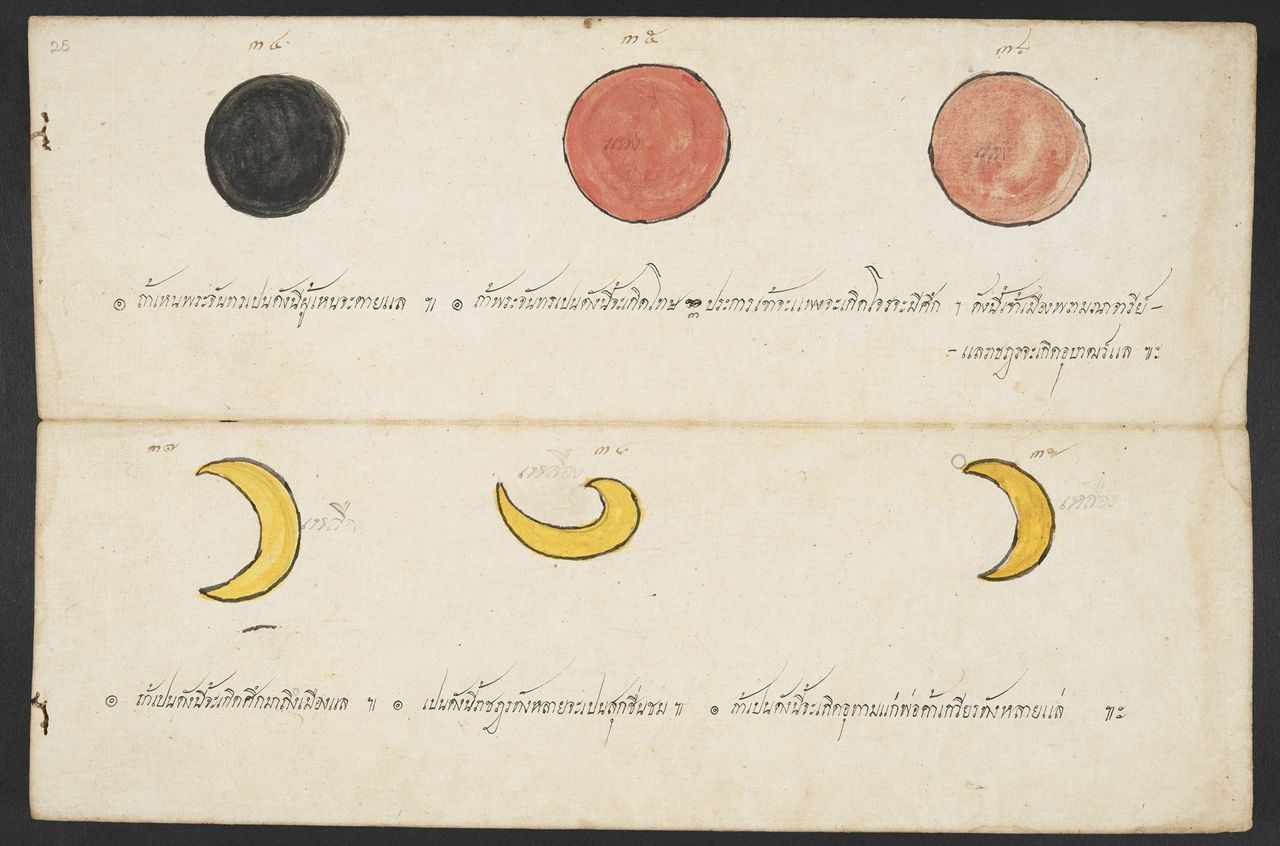 25
๓๔ ๓๕ ๓๖
แดง แดง
๏ ถ้าเหนพระจันทรเปนดังนี้ผู้เหนจะตายแล ฯ ๏ ถ้าพระจันทรเปนดังนี้จะเกิดโทษ ๓ ประการเข้าจะแพงจะเกิดโจรจะมีศึก ฯ ดังนี้เจ้าเมืองพราหมณาจารีย์ –
– แลราชฎรจะเกิดอุบาทว์แล ฯะ
๓๗ ๓๘ ๓๙
เหลือง เหลือง เหลือง
๏ ถ้าเปนดังนี้จะเกิดศึกมาถึงเมืองแล ฯ ๏ เปนดังนี้ราชฎรทังหลายจะเปนสุกชื่นชม ฯ ๏ ถ้าเปนดังนี้จะเกิด แก่พ่อค้า ทังหลายแล ฯะ